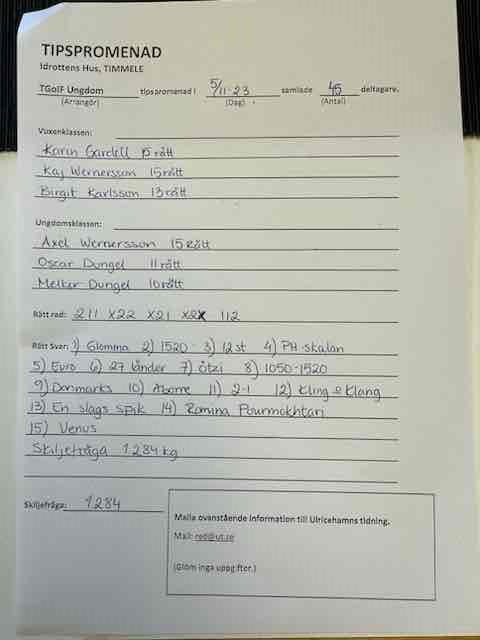 TIPSPROMENAD
Idrottens Hus, TIMMELE
TGoIF Ungdom tipspromenad i 5/11-23 samlade 45 deltagare.
(Arrangör) (Dag) (Antal)
Vuxenklassen:
Karin Gardell 15 rätt
Kaj Wernersson 15 rätt
Birgit Karlsson 13 rätt
Ungdomsklassen:
Axel Wernersson 15 Rätt
Oscar Dungel 11 rätt
Melker Dungel 10 rätt
Rätt rad: 211 X22 X21 X2X 112
Rätt Svar: 1) Glomma 2) 1520 - 3) 12 st 4) PH-skalan
5) Euro 6) 27 länder 7) Ötzi 8) 1050-1520
9) Danmarks 10) Aborre 11) 2-1 12) Kling & Klang
13) En slags spik 14) Romina Pourmokhtari
15) Venus
Skiljefråga 1284 kg
Skiljefråga: 1284
Maila ovanstående information till Ulricehamns tidning.
Mail: red@ut.se
(Glöm inga uppgifter.)